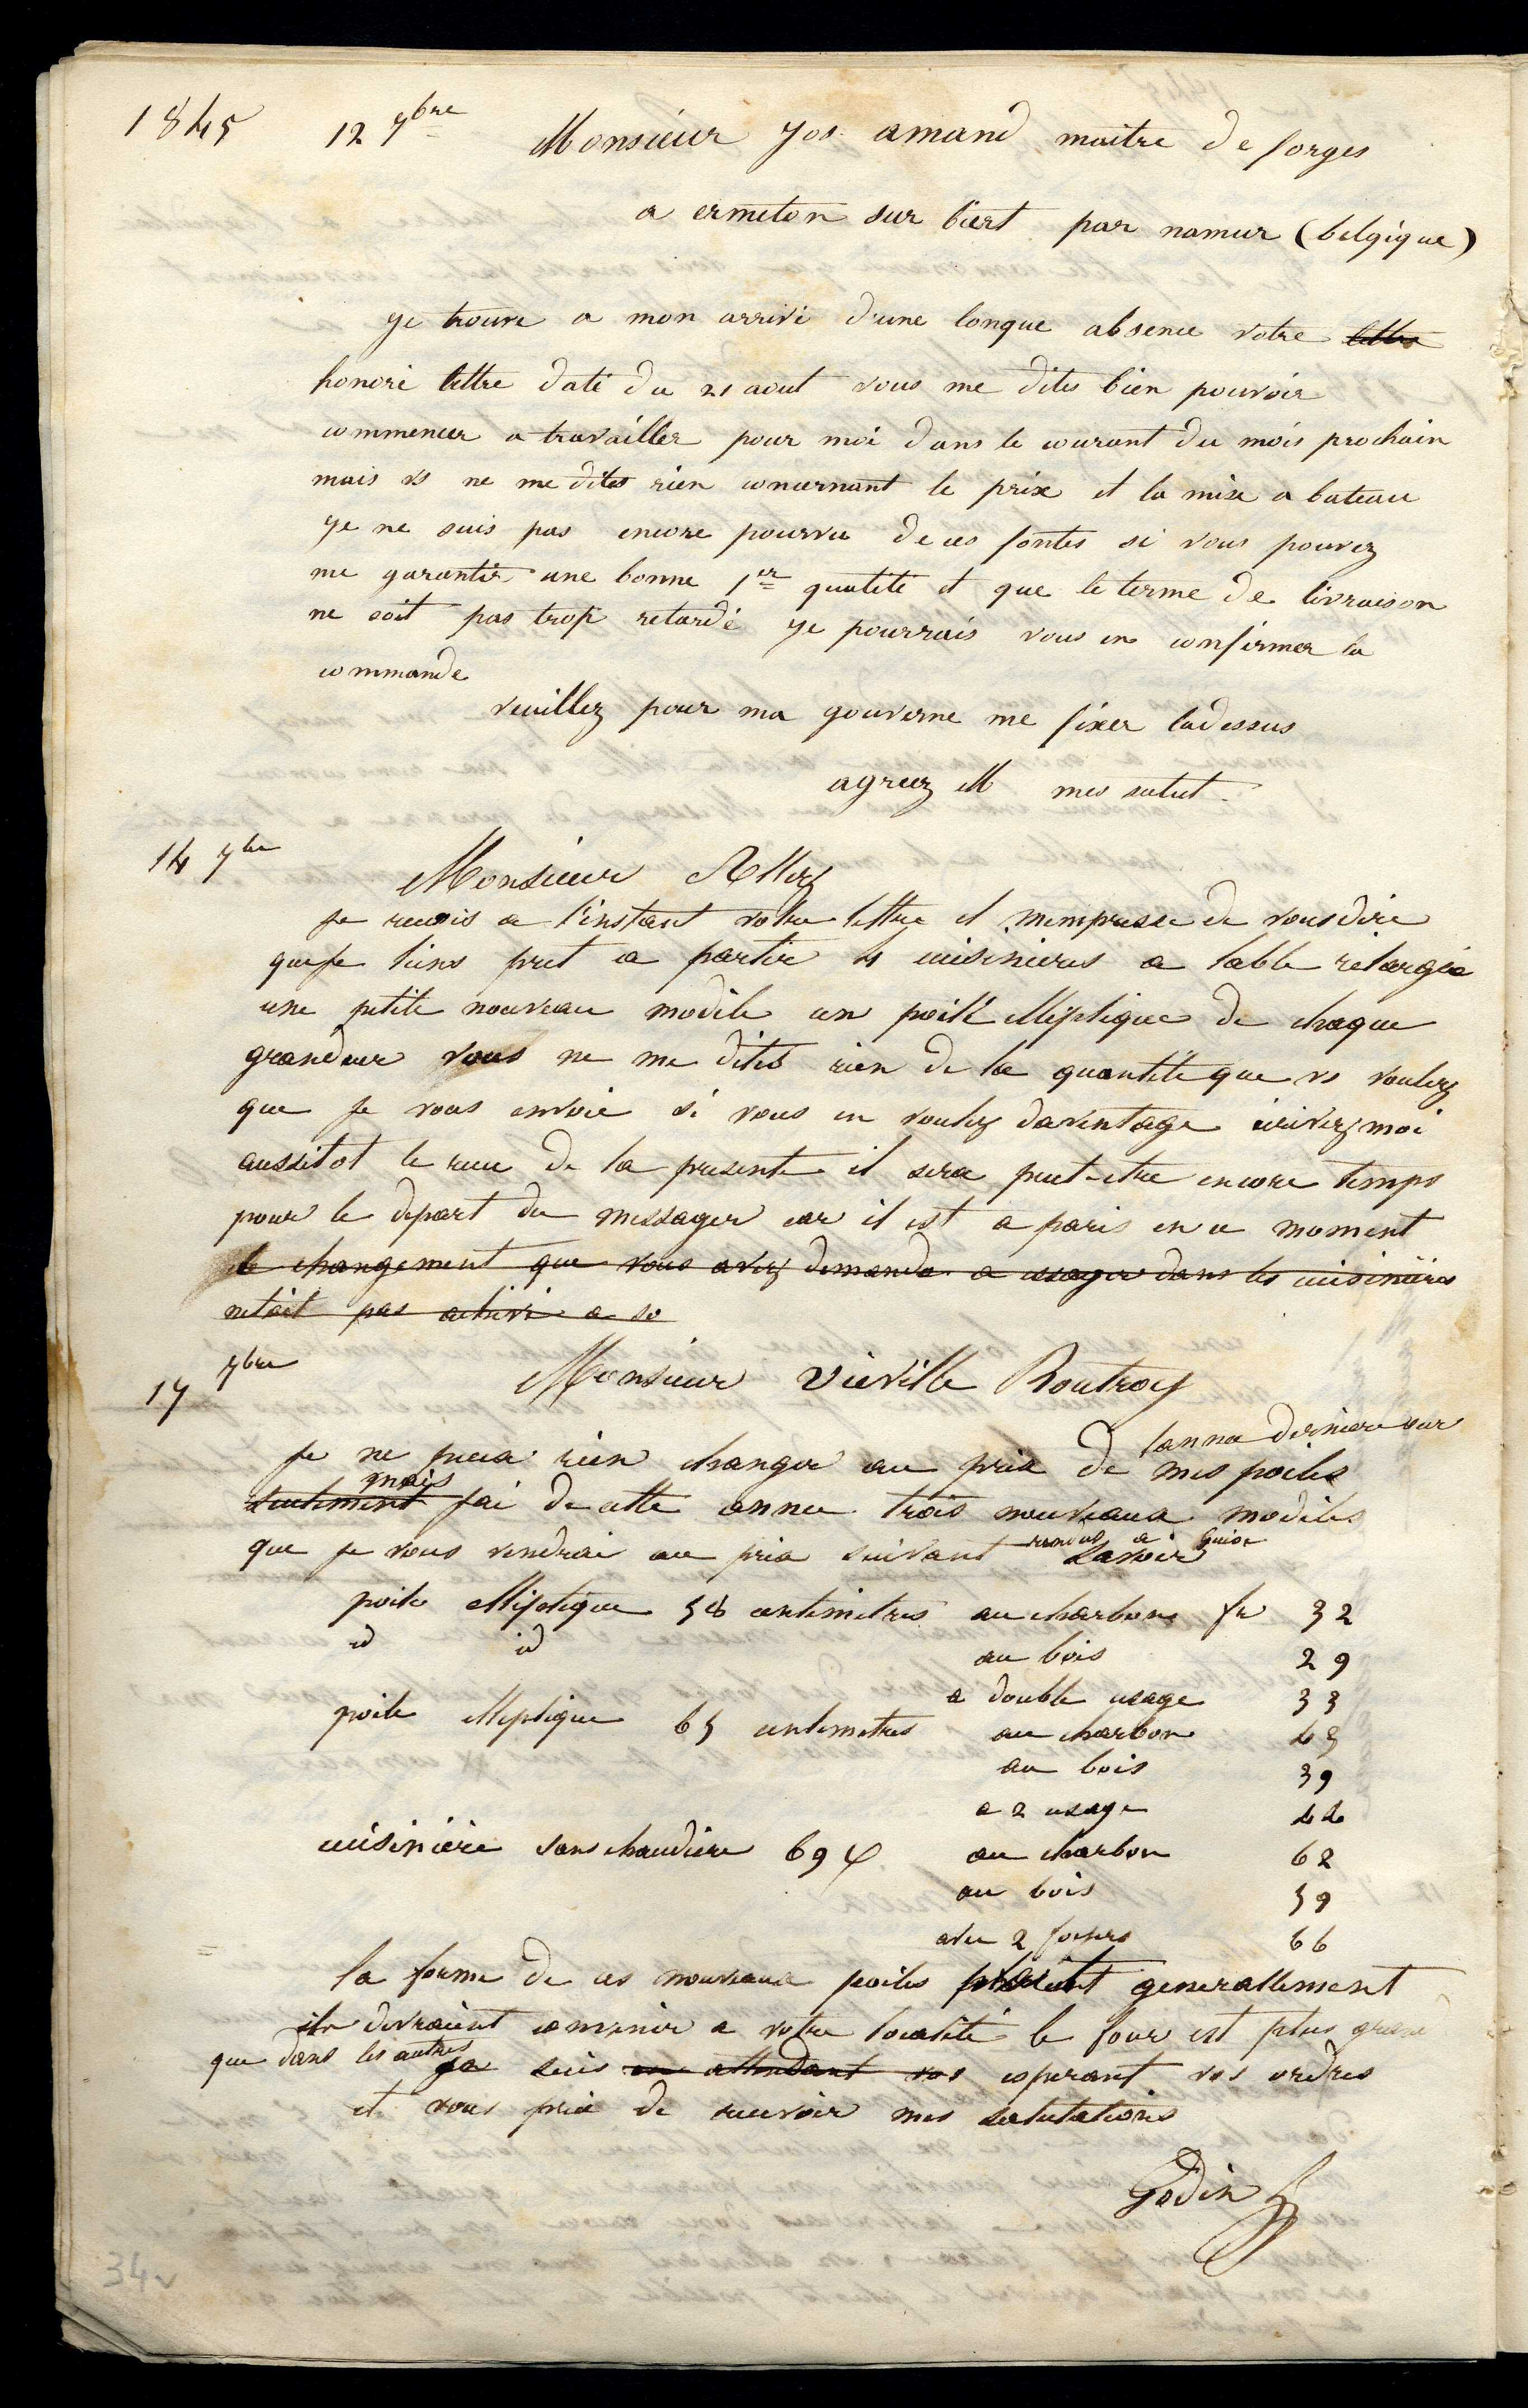 1845 12 7bre Monsieur Jos. amand maitre de forges
a ermeton sur biert par namur (belgique)
je trouve a mon arrivé d'une longue absence votre lettre
honoré lettre daté du 21 aout vous me dites bien pouvoir
commencer a travailler pour moi dans le courant du mois prochain
mais vs ne me dites rien concernant le prix et la mise a bateau
je ne suis pas encore pourvu de ces fontes si vous pouvez
me garantir une bonne 1er qualité et que le terme de livraison
ne soit pas trop retardé je pourrais vous en confirmer la
commande
veuillez pour ma gouverne me fixer ladessus
agreez M mes salut.
14 7bre
Monsieur
je recois a l'instant votre lettre et m'empresse de vous dire
que je tiens pret a partir 4 cuisinieres a table relargie
une petite nouveau modele un poele elleptique de chaque
grandeur vous ne me dites rien de la quantité que vs voulez
que je vous envoie si vous en voulez daventage ecrivez moi
aussitot le recu de la presente il sera peut-etre encore temps
pour le depart du messager car il est a paris en ce moment
le changement que vous avez demandé a essayer dans les cuisinières
netait pas achevé a so
17 7bre Monsieur Vieville Routroy
lanne derniere sur
je ne peux rien changer au prix de mes poeles
mais
seulement jai de cette annee trois nouveaux modeles
rendus a Guise
que je vous vendrai au prix suivant savoir
poele elleptique 58 centimetres au charbon fr 32
id id au bois 29
a double usage 33
poele elleptique 65 centimetres au charbon 43
au bois 39
a 2 usage 44
cuisinière sans chaudiere 69 c au charbon 62
au bois 59
avec 2 foyers 66
la forme de ces nouveaux poeles plaisent generallement
ils devraient convenir a votre localité le four est plus grand
que dans les autres
je suis en attendant vos esperant vos ordres
et vous prie de recevoir mes salutations
Godin
34v